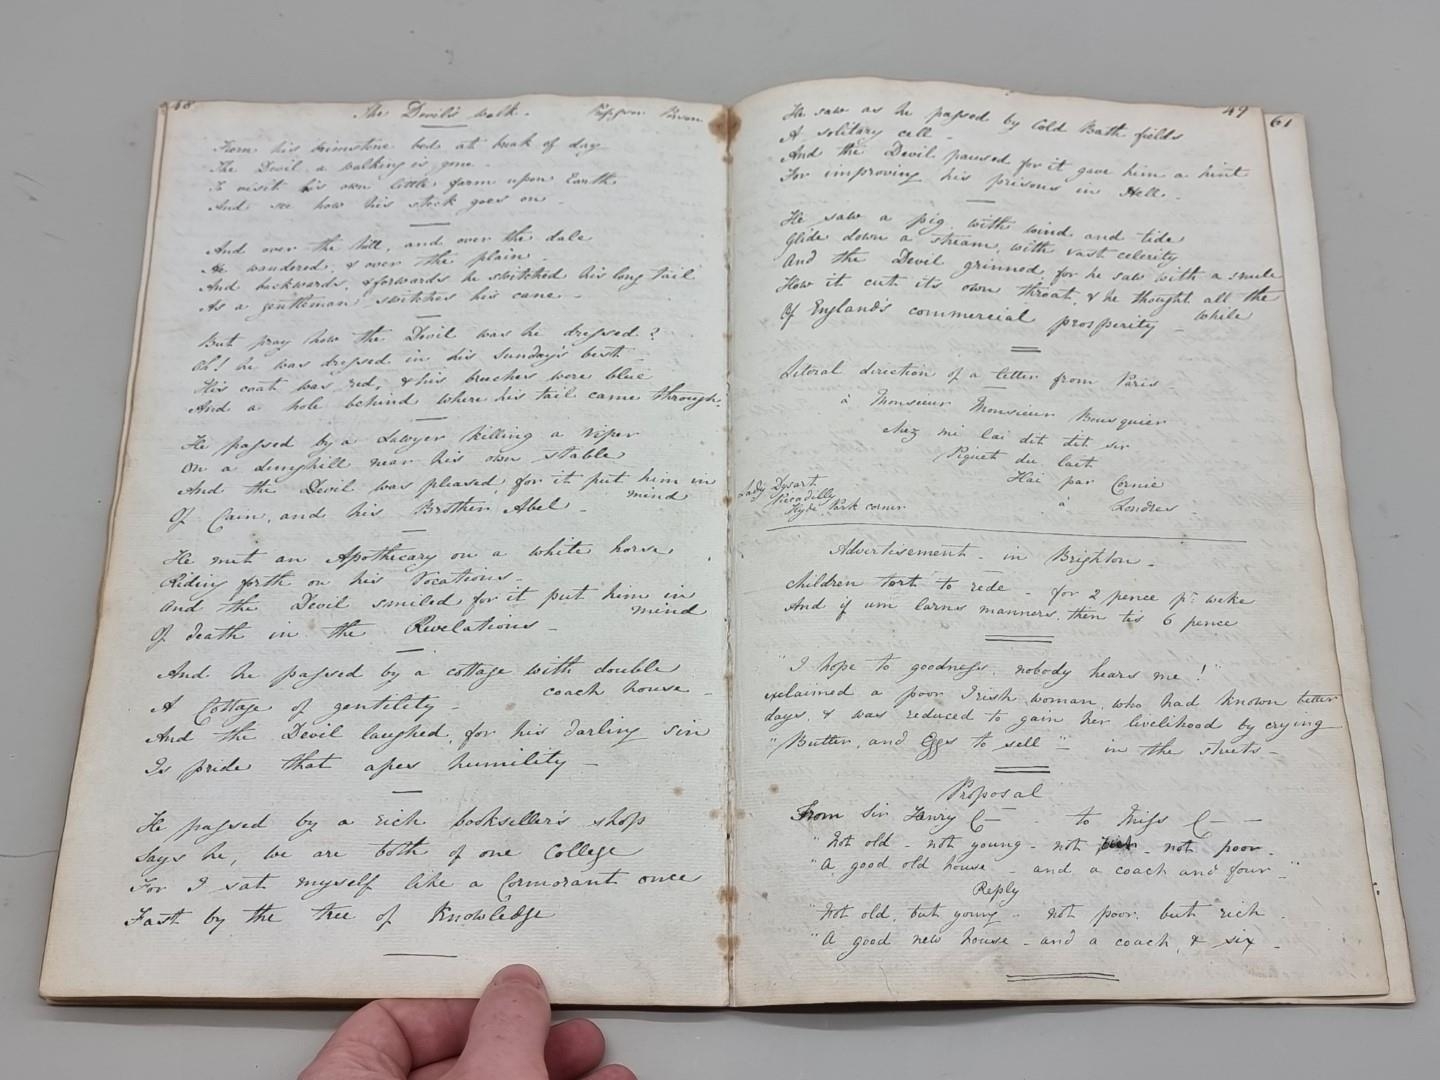 48
The Devil's walk. Professor Porson
From his brimstone bed at break of day
The Devil a walking is gone
To visit his own little farm upon Earth
And see how his stock goes on -
And over the hill, and over the dale
He wandered, & over the plain
And backwards, & forwards he switched his long tail
As a gentleman switches his cane -
But pray how the Devil was he dressed?
Oh! he was dressed in his Sunday's best -
His coat was red, & his breeches were blue
And a hole behind where his tail came through.
He passed by a Lawyer killing a Viper
On a dunghill near his own stable
And the Devil was pleased, for it put him in
mind
Of Cain, and his Brother Abel -
He met an Apothecary on a white horse
Riding forth on his Vocations -
And the Devil smiled, for it put him in
mind
Of death in the Revelations -
And he passed by a cottage with double
coach house -
A Cottage of gentility -
And the Devil laughed, for his darling sin
Is pride that apes humility -
He passed by a rich bookseller's shop
Says he, we are both of one College
For I sat myself like a Cormorant once
Fast by the tree of Knowledge
49
61
He saw as he passed by Cold Bath fields
A solitary cell -
And the Devil paused for it gave him a hint
For improving his prisons in Hell -
He saw a pig with wind and tide
Glide down a stream, with vast celerity
And the Devil grinned, for he saw with a smile
How it cut it's own throat, & he thought all the
while
Of England's commercial prosperity -
Literal direction of a letter from Paris -
à Monsieur Monsieur Bousquier
chez mi lai dit dit sir
Piquet du lait
Hai par Cornie
à Londres -
Lady Dysart
Piccadilly
Hyde Park corner
Advertisement - in Brighton -
Children tort to rede - for 2 pence pr. weke
And if um larns manners, then tis 6 pence
"I hope to goodness, nobody hears me!"
exclaimed a poor Irish woman, who had known better
days, & was reduced to gain her livelihood by crying
"Butter, and Eggs to sell" - in the streets -
Proposal
From Sir Henry C— to Miss C— —
"Not old - not young - not rich - not poor -
"A good old house - and a coach and four -"
Reply
"Not old, but young - not poor, but rich
"A good new house - and a coach, & six -